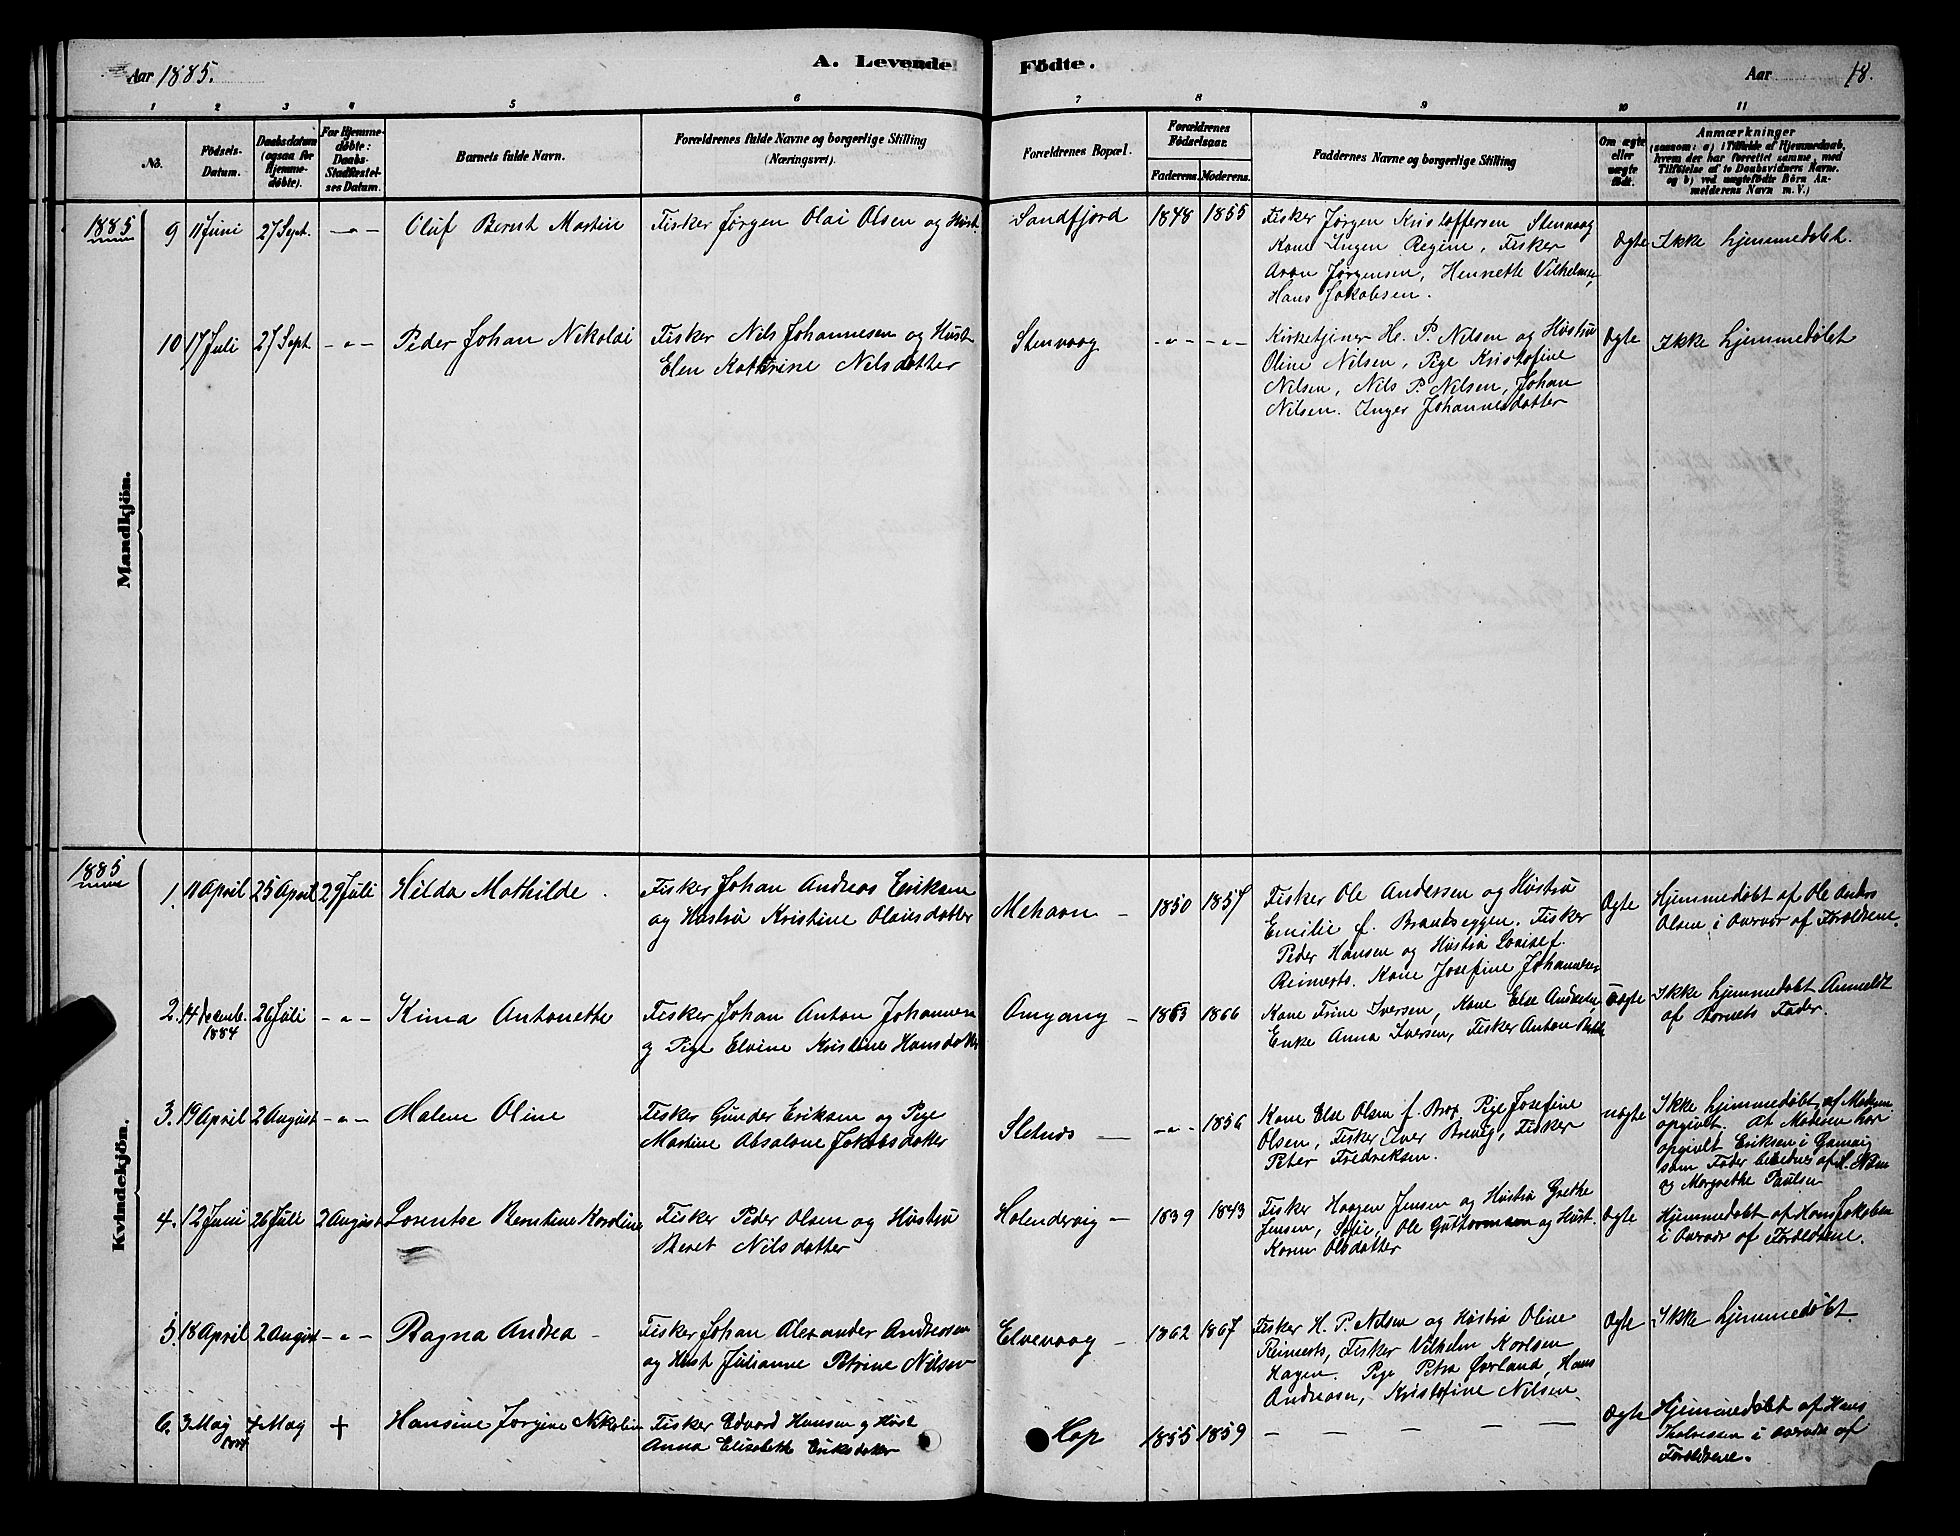 Aar 1885.
A. Levende Fødte.
Aar 18.
1 2 3 4 5 6 7 8 9 10 11
No.
Fødsels-Datum.
Daabsdatum (ogsaa for Hjemme-døbte).
For Hjemme-døbte: Daabs-Stadfæstel-ses Datum.
Barnets fulde Navn.
Forældrenes fulde Navne og borgerlige Stilling (Næringsvei).
Forældrenes Bopæl.
Forældrenes Fødselsaar.
Faderens. Moderens.
Faddernes Navne og borgerlige Stilling
Om ægte eller uægte født.
Anmærkninger
(saasom: a) i Tilfælde af Hjemmedaab, hvem der har forrettet samme, med Tilføielse af to Daabsvidners Navne, og b) ved uægtefødte Børn An-melderens Navn m. V.)
1885
Mandkjøn.
9 11 Juni 27 Sept. -"- Oluf Bernt Martin
Fisker Jørgen Olai Olsen og Hust.
Sandfjord 1848 1855
Fisker Jørgen Kristoffersen Stenvaag
Kone Ingen Regine, Fisker
Aron Jørgensen, Henrette Vilhelmsen,
Hans Jakobsen.
Ægte Ikke hjemmedøbt.
10 17 Juli 27 Sept -"- Peder Johan Nikolai
Fisker Nils Johannesen og Hust
Elen Kathrine Nilsdatter
Stenvaag -"- -"-
Kirketjener H. P. Nilsen og Hustru
Oline Nilsen, Pige Kristofine
Nilsen, Nils P. Nilsen, Johan
Nilsen. Inger Johannesdatter
Ægte Ikke hjemmedøbt
1885
Kvindekjøn.
1. 11 April 25 April 29 Juli Hilda Mathilde.
Fisker Johan Andreas Eriksen
og Hustru Kristine Olausdatter
Mehavn - 1850 1857
Fisker Ole Andersen og Hustru
Emilie f. Brandseggen. Fisker
Peder Hansen og Hustru Lovise f.
Reimerts. Kone Josefine Johannesen
Ægte
Hjemmedøbt af Ole Andrs
Olsen i Overvær af Forældrene.
2. 14 Decemb. 1884 26 Juli -"- Kima Antonette
Fisker Johan Anton Johannesen
og Pige Elvine Kristine Hansdatter
Omgang - 1863 1866
Kone Trine Iversen, Kone Else Andersen,
Enke Anna Iversen, Fisker Anton
Uægte
Ikke hjemmedøbt Anmeldt
af Barnets Fader.
3. 19 April 2 August -"- Malene Oline
Fisker Gunder Eriksen og Pige
Martine Absalone Jakobsdatter
Sletnes - -"- 1856
Kone Else Olsen f. Brox, Pige Josefine
Olsen, Fisker Iver Brevig, Fisker
Peter Fredriksen.
uægte
Ikke hjemmedøbt af Moderen
opgivet. At Moderen har
opgivet Eriksen i Gamvig
som Fader bevidnes af
og Margrethe Paulsen
4. 12 Juni 26 Juli 2 August Lorentse Berntine Karoline
Fisker Peder Olsen og Hustru
Beret Nilsdatter
Holendervig - 1839 1843
Fisker Haagen Jensen og Hustru Grethe
Jensen, Sofie, Ole Guttormsen og Hust.
Karen Olsdatter
Ægte
Hjemmedøbt af Hans Jakobsen
i Overvær af Forældrene.
5. 18 April 2 August -"- Ragna Andrea -
Fisker Johan Alexander Andreasen
og Hust Julianne Petrine Nilsen
Elvevaag - 1862 1867
Fisker H. P. Nilsen og Hustru Oline
Reimerts, Fisker Vilhelm Karlsen
Hagen. Pige Petra Ørland, Hans
Andreasen, Kristofine Nilsen.
Ægte Ikke hjemmedøbt.
6. 3 Mag 4 Mag + Hansine Jørgine Nikoline
Fisker Edvard Hansen og Hust
Anna Elisabeth Eriksdatter
Hop 1855 1859 - - - - -
Ægte
Hjemmedøbt af Hans
i Overvær af
Forældrene.